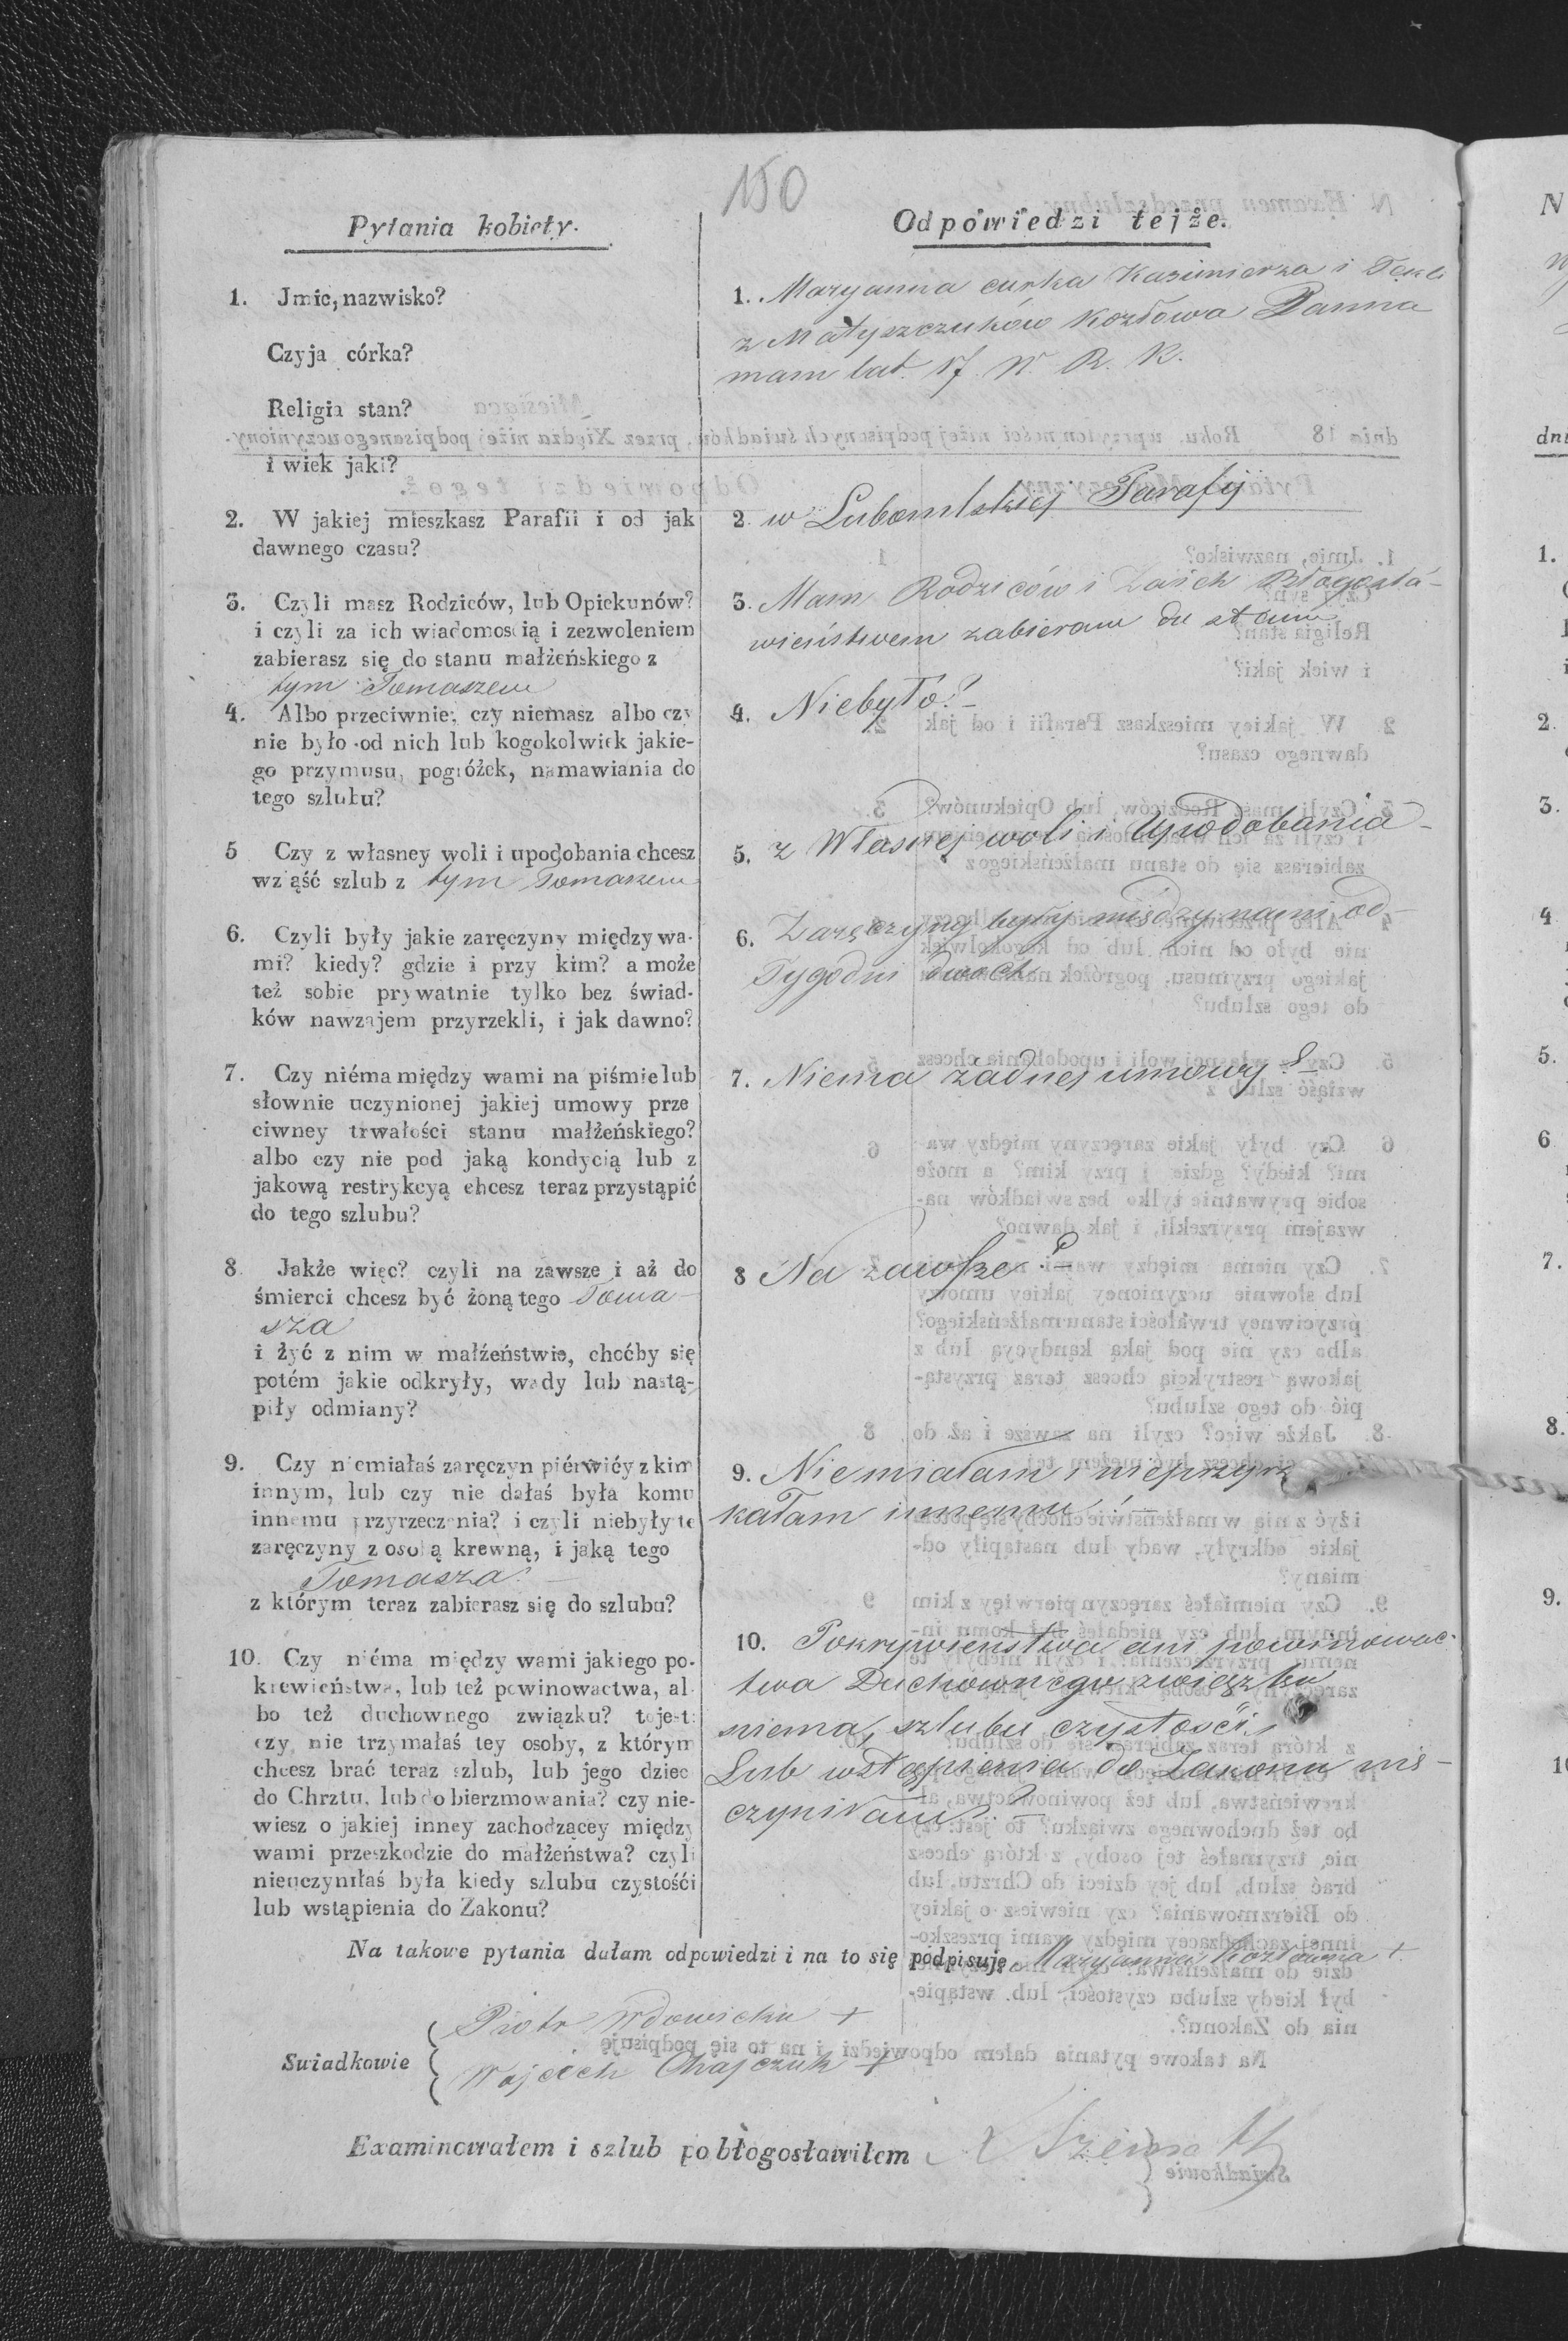 150
Pytania kobiety.
1. Jmie, nazwisko?
Czyja córka?
Religia stan?
i wiek jaki?
2. W jakiej mieszkasz Parafii i od jak
dawnego czasu?
3. Czyli masz Rodziców, lub Opiekunów?
i czyli za ich wiadomoscią i zezwoleniem
zabierasz się do stanu małżeńskiego z
tym Tomaszem
4. Albo przeciwnie, czy niemasz albo czy
nie było od nich lub kogokolwiek jakie-
go przymusu, pogróżek, namawiania do
tego szlubu?
5 Czy z własney woli i upodobania chcesz
wziąść szlub z tym Tomaszem
6. Czyli były jakie zaręczyny między wa-
mi? kiedy? gdzie i przy kim? a może
też sobie prywatnie tylko bez świad-
ków nawzajem przyrzekli, i jak dawno?
7. Czy niéma między wami na piśmie lub
słownie uczynionej jakiej umowy prze
ciwney trwałości stanu małżeńskiego?
albo czy nie pod jaką kondycią lub z
jakową restrykcyą chcesz teraz przystąpić
do tego szlubu?
8. Jakże więc? czyli na zawsze i aż do
śmierci chcesz być żoną tego Toma-
sza
i żyć z nim w małżeństwie, choćby się
potém jakie odkryły, wady lub nastą-
piły odmiany?
9. Czy niemiałaś zaręczyn piérwićy z kim
innym, lub czy nie dałaś była komu
innemu przyrzeczenia? i czyli niebyły te
zaręczyny z osobą krewną, i jaką tego
Tomasza
z którym teraz zabierasz się do szlubu?
10. Czy niéma między wami jakiego po-
krewieństwa, lub też powinowactwa, al
bo też duchownego związku? to jest:
czy nie trzymałaś tey osoby, z którym
chcesz brać teraz szlub, lub jego dziec
do Chrztu, lub do bierzmowania? czy nie-
wiesz o jakiej inney zachodzącey między
wami przeszkodzie do małżeństwa? czyli
nieuczyniłaś była kiedy szlubu czystośći
lub wstąpienia do Zakonu?
Odpowiedzi tejże.
1. Maryanna curka Kazimierza i Tekli
z Matyszczuków Kozłowa Panna
mam lat 17 W. R. K.
2. w Lubomlskiej Parafij
3. Mam Rodziców i Zaich Błagosła-
wieństwem zabieram du stanu
4. Niebyło
5. z Własnej woli i Upodobania
6. Zaręczyny były między nami od
Tygodni dwoch
7. Niema żadnej umowy
8 Na zawsze
9. Niemiałam i nieprzyrz
kałam innemu
10. Pokrywieństwa ani powinowac-
twa Duchownego związku
niema, szlubu czystości
Lub wstąpienia do Zakonu nie-
czyniłam
Na takowe pytania dałam odpowiedzi i na to się podpisuję Maryanna Kozłowna +
Swiadkowie
Piotr Wdowicku +
Wojciech Chajczuk +
Examinowałem i szlub pobłogosławiłem